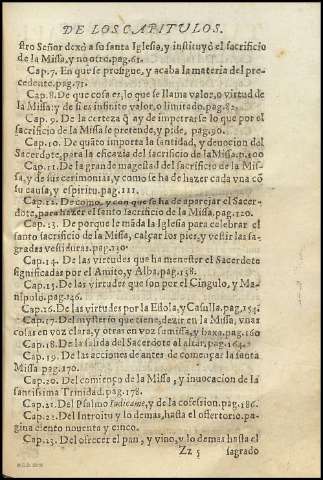 DE LOS CAPITVLOS.
stro Señor dexò a su santa Iglesia, y instituyò el sacrificio
de la Missa, y no otro. pag. 61.
Cap. 7. En que se prosigue, y acaba la materia del pre-
cedente. pag. 71.
Cap. 8. De que cosa es, lo que se llama valor, o virtud de
la Missa: y de si es infinito valor, o limitado. pag. 82.
Cap. 9. De la certeza q̃ ay de impetrarse lo que por el
sacrificio de la Missa se pretende, y pide, pag. 90.
Cap. 10. De quãto importa la santidad, y deuocion del
Sacerdote, para la eficazia del sacrificio de la Missa. p. 100
Cap. 11. De la grande magestad del sacrificio de la Mis-
sa, y de sus cerimonias, y como se ha de hazer cada vna cõ
su causa, y espiritu. pag. 111.
Cap. 12. De como, y con que se ha de aparejar el Sacer-
dote, para hazer el santo sacrificio de la Missa. pag. 120.
Cap. 13. De porque le mãda la Iglesia para celebrar el
santo sacrificio de la Missa, calçar los pies, y vestir las sa-
gradas vestiduras. pag. 130
Cap. 14. De las virtudes que ha menester el Sacerdote
significadas por el Amito, y Alba. pag. 138.
Cap. 15. De las virtudes que son por el Cingulo, y Ma-
nipulo. pag. 146.
Cap. 16. De las virtudes por la Estola, y Casulla. pag. 154.
Cap. 17. Del mysterio que tiene, dezir en la Missa, vnas
cosas en voz clara, y otras en voz sumissa, y baxa. pag. 160
Cap. 18. De la salida del Sacerdote al altar. pag. 164.
Cap. 19. De las acciones de antes de començar la santa
Missa pag. 170.
Cap. 20. Del comienço de la Missa, y inuocacion de la
santissima Trinidad. pag. 178.
Cap. 21. Del Psalmo Iudica me, y de la cõfession. pag. 186.
Cap. 22. Del Introitu y lo demas, hasta el ofertorio. pa-
gina ciento nouenta y cinco.
Cap. 23. Del ofrecer el pan, y vino, y lo demas hasta el
Zz 5 sagrado